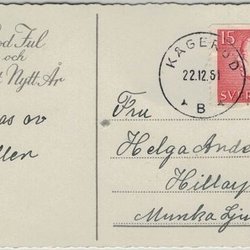 od Jul
och
t Nytt År
as av
llen
KÅGERÖD
22.12.51
B
15
SVERI
Fru
Helga Ande
Hillay
Munka Lju